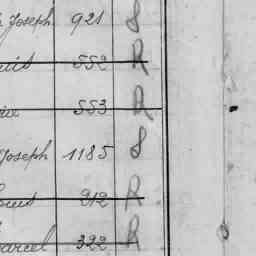 Joseph 921 8
552 R
553 R
Joseph 1185 8
912 R
arcel 322 R